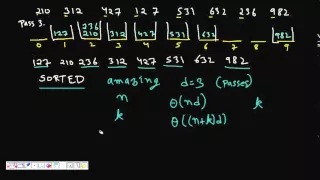 210 312 427 127 531 632 236 982
Pass 3.
236
127 210 312 427 531 632 982
0 1 2 3 4 5 6 7 8 9
127 210 236 312 427 531 632 982
SORTED amazing d=3 (passes)
n θ(nd) k
k θ((n+k)d)